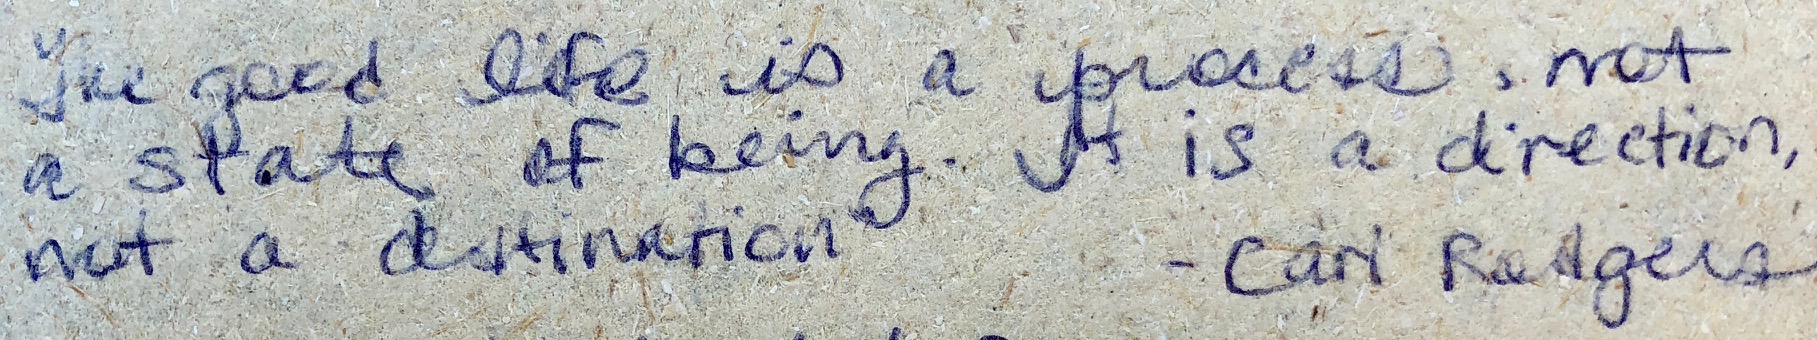 "The good life is a process, not
a state of being. It is a direction,
not a destination"
- Carl Rodgers